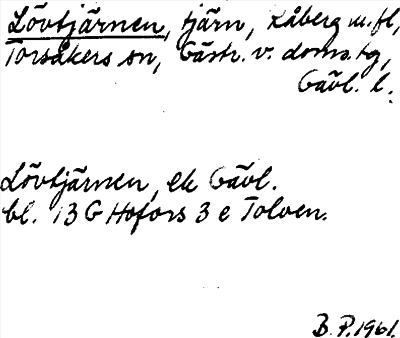 Lövtjärnen, tjärn, Kåberg m.fl,
Torsåkers sn, Gästr. v. doms. tg,
Gävl. l.
Lövtjärnen, ek Gävl.
bl. 13 G Hofors 3 e Tolven.
B.P. 1961.